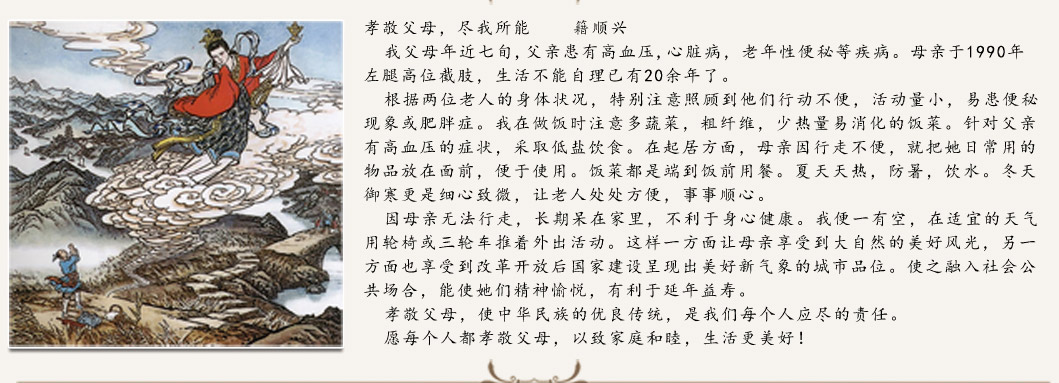 孝敬父母，尽我所能　　籍顺兴
我父母年近七旬,父亲患有高血压,心脏病，老年性便秘等疾病。母亲于1990年
左腿高位截肢，生活不能自理已有20余年了。
根据两位老人的身体状况，特别注意照顾到他们行动不便，活动量小，易患便秘
现象或肥胖症。我在做饭时注意多蔬菜，粗纤维，少热量易消化的饭菜。针对父亲
有高血压的症状，采取低盐饮食。在起居方面，母亲因行走不便，就把她日常用的
物品放在面前，便于使用。饭菜都是端到饭前用餐。夏天天热，防暑，饮水。冬天
御寒更是细心致微，让老人处处方便，事事顺心。
因母亲无法行走，长期呆在家里，不利于身心健康。我便一有空，在适宜的天气
用轮椅或三轮车推着外出活动。这样一方面让母亲享受到大自然的美好风光，另一
方面也享受到改革开放后国家建设呈现出美好新气象的城市品位。使之融入社会公
共场合，能使她们精神愉悦，有利于延年益寿。
孝敬父母，使中华民族的优良传统，是我们每个人应尽的责任。
愿每个人都孝敬父母，以致家庭和睦，生活更美好！